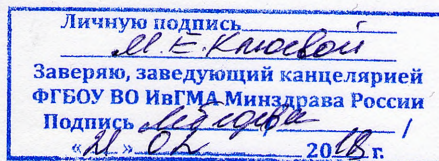 Личную подпись
М.Е. Клюевой
Заверяю, заведующий канцелярией
ФГБОУ ВО ИвГМА Минздрава России
Подпись /
«21» 02 2018 г.